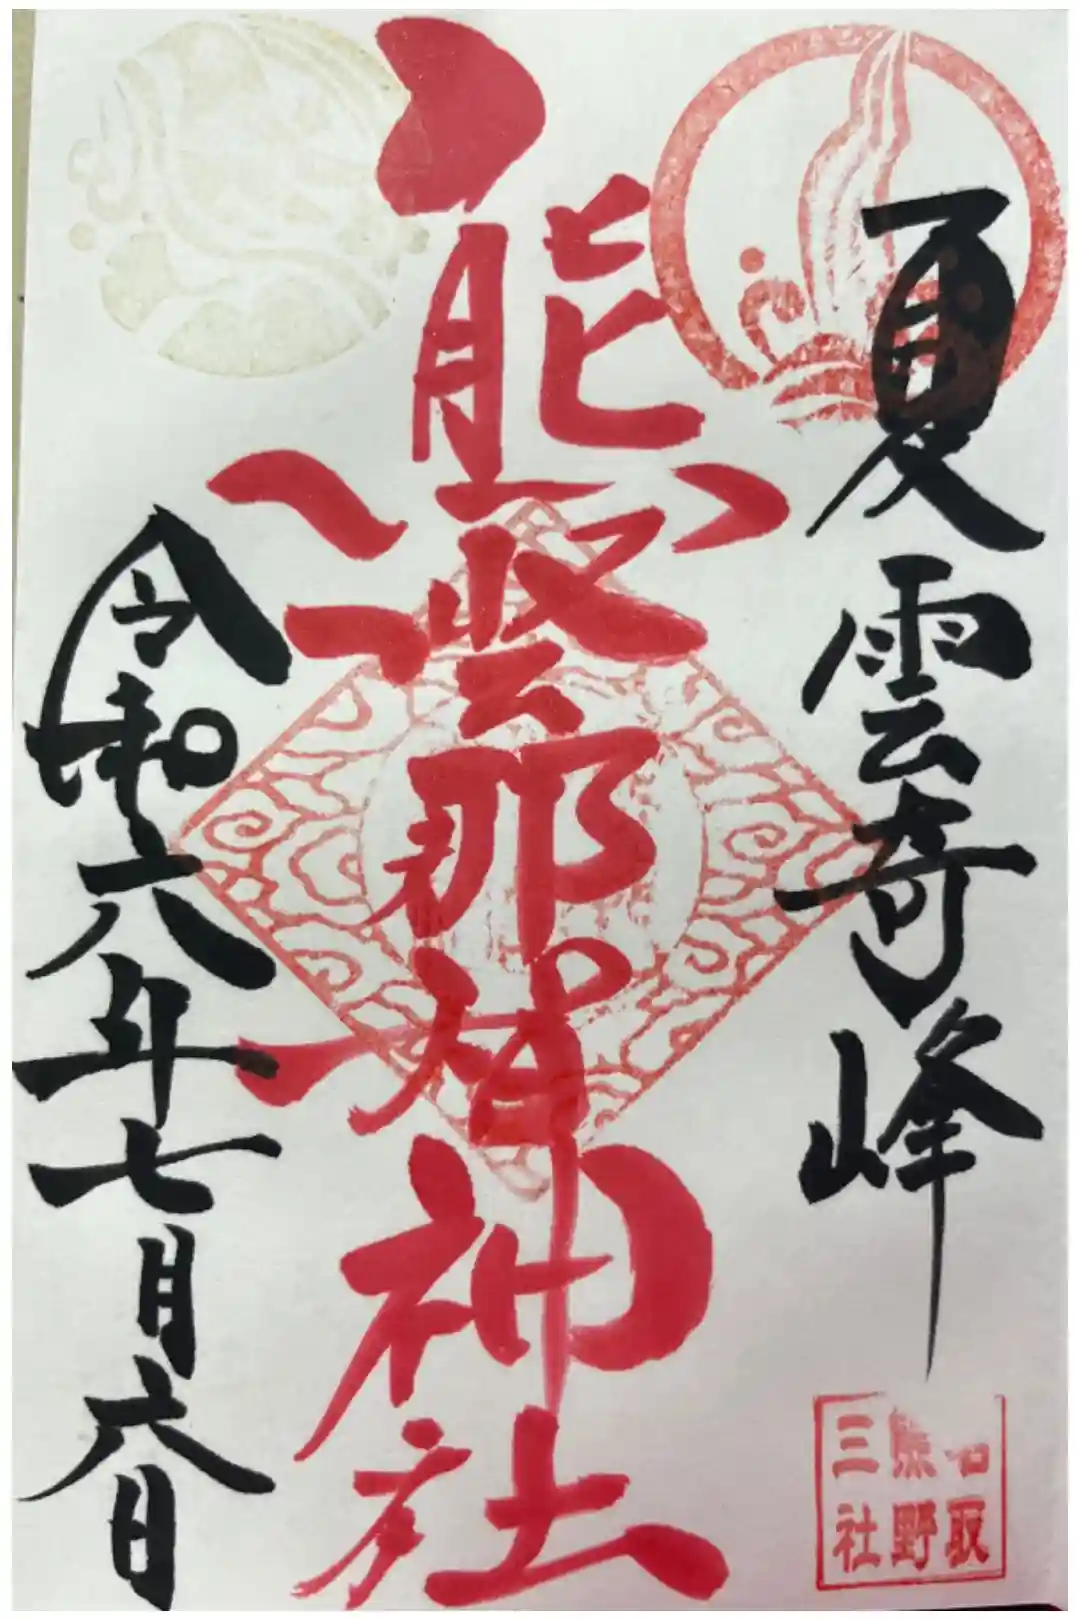 夏雲奇峰
熊野那智神社
令和六年七月六日
名取
熊野
三社